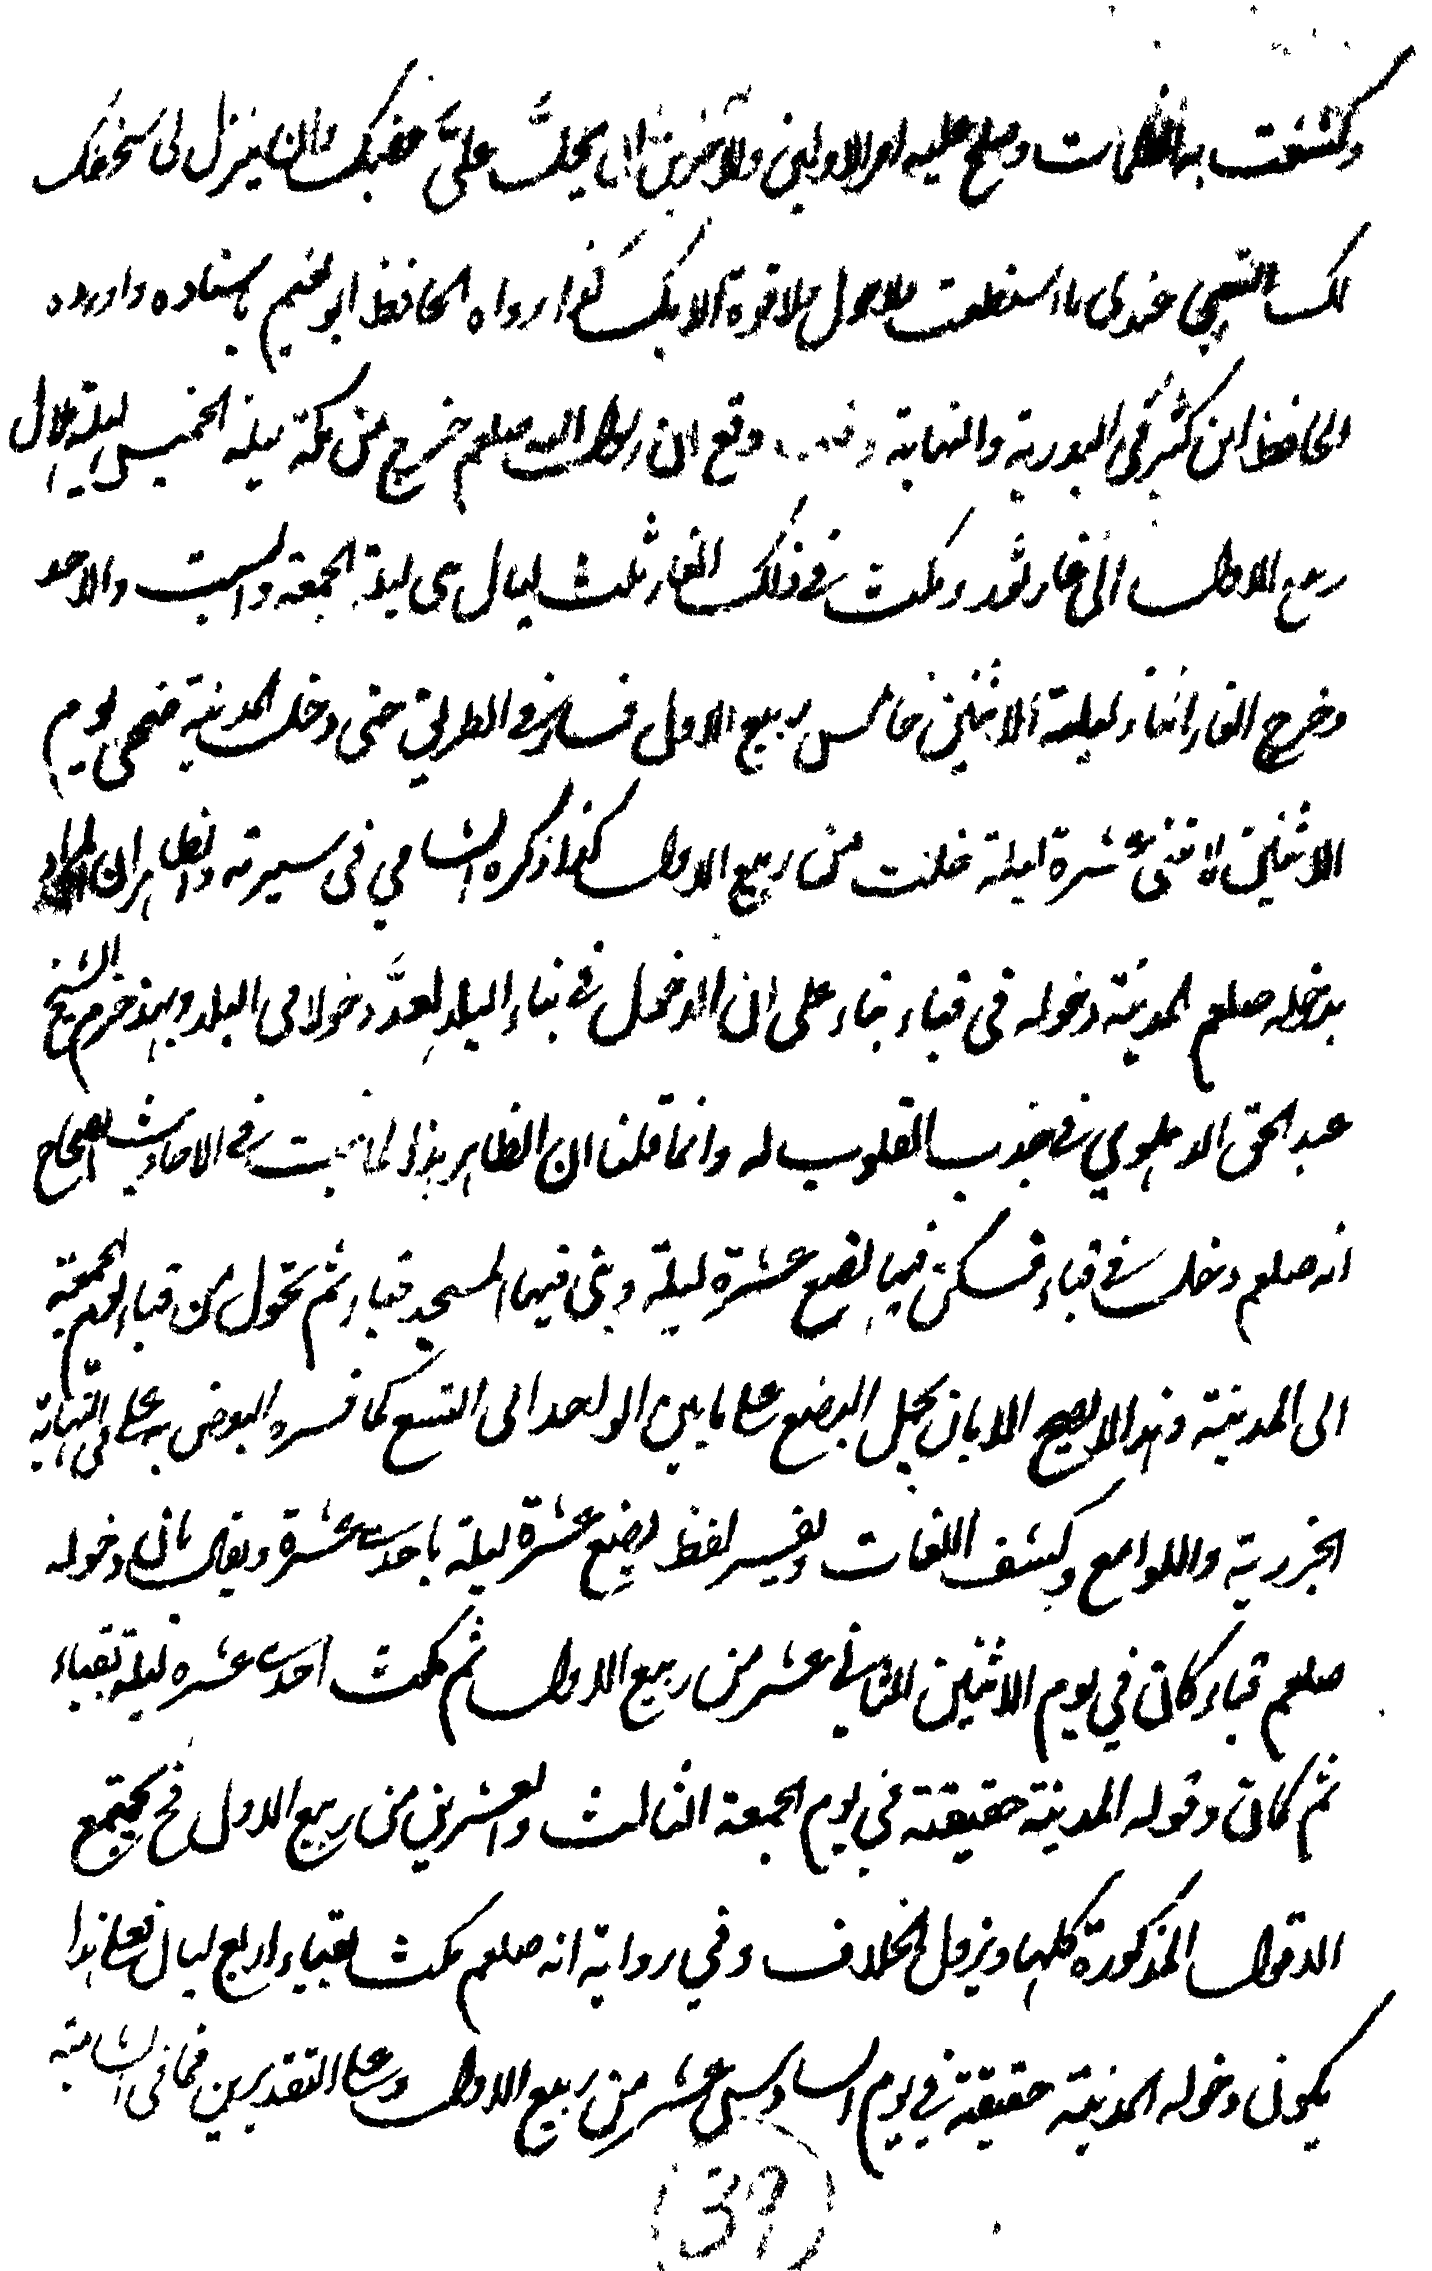 وكشفت به الظلمات وصلح عليه امر الاولين والآخرين ان يحل عليّ غضبك وان ينزل لى سخطك
لك العتبى عندى ما استطعت ولا حول ولا قوة الا بك كذا رواه الحافظ ابو نعيم باسناده واورده
الحافظ ابن كثير فى البداية والنهاية وقع ان رسول الله صلعم خرج من مكة ليلة الخميس ليلة هلال
ربيع الاول الى غار ثور ومكث فى ذلك الغار ثلث ليال هى ليلة الجمعة والسبت والاحد
وخرج الغار اثناء ليلة الاثنين خامس ربيع الاول فسار فى الطريق حتى دخل المدينة ضحى يوم
الاثنين لاثنتى عشرة ليلة خلت من ربيع الاول كذا ذكره الشامي فى سيرته والظاهر ان المراد
بدخوله صلعم المدينة دخوله فى قباء بناء على ان الدخول فى بناء البلد يعدّ دخولا فى البلد وبهذا جزم الشيخ
عبد الحق الدهلوي فى جذب القلوب له وانما قلنا ان الظاهر هذا لما ثبت فى الاحاديث الصحاح
انه صلعم دخل فى قباء فسكن فيها بضع عشرة ليلة وبنى فيها المسجد قباء ثم تحول من قباء يوم الجمعة
الى المدينة وهذا لا يصح الا بان يحمل البضع على ما بين الواحد الى التسع كما فسره البعض به على فى النهاية
الجزرية واللوامع وكشف اللغات ويفسر لفظ بضع عشرة ليلة باحدى عشرة ويقال بان دخوله
صلعم قباء كان في يوم الاثنين الثاني عشر من ربيع الاول ثم مكث احدى عشره ليلة بقباء
ثم كان دخوله المدينة حقيقة في يوم الجمعة الثالث والعشرين من ربيع الاول فح يجتمع
الاقوال المذكورة كلها ويزول الخلاف وفي رواية انه صلعم مكث بقباء اربع ليال فعلى هذا
يكون دخوله المدينة حقيقة في يوم السادس عشر من ربيع الاول وعلى التقديرين فما فى الشامية
(39)